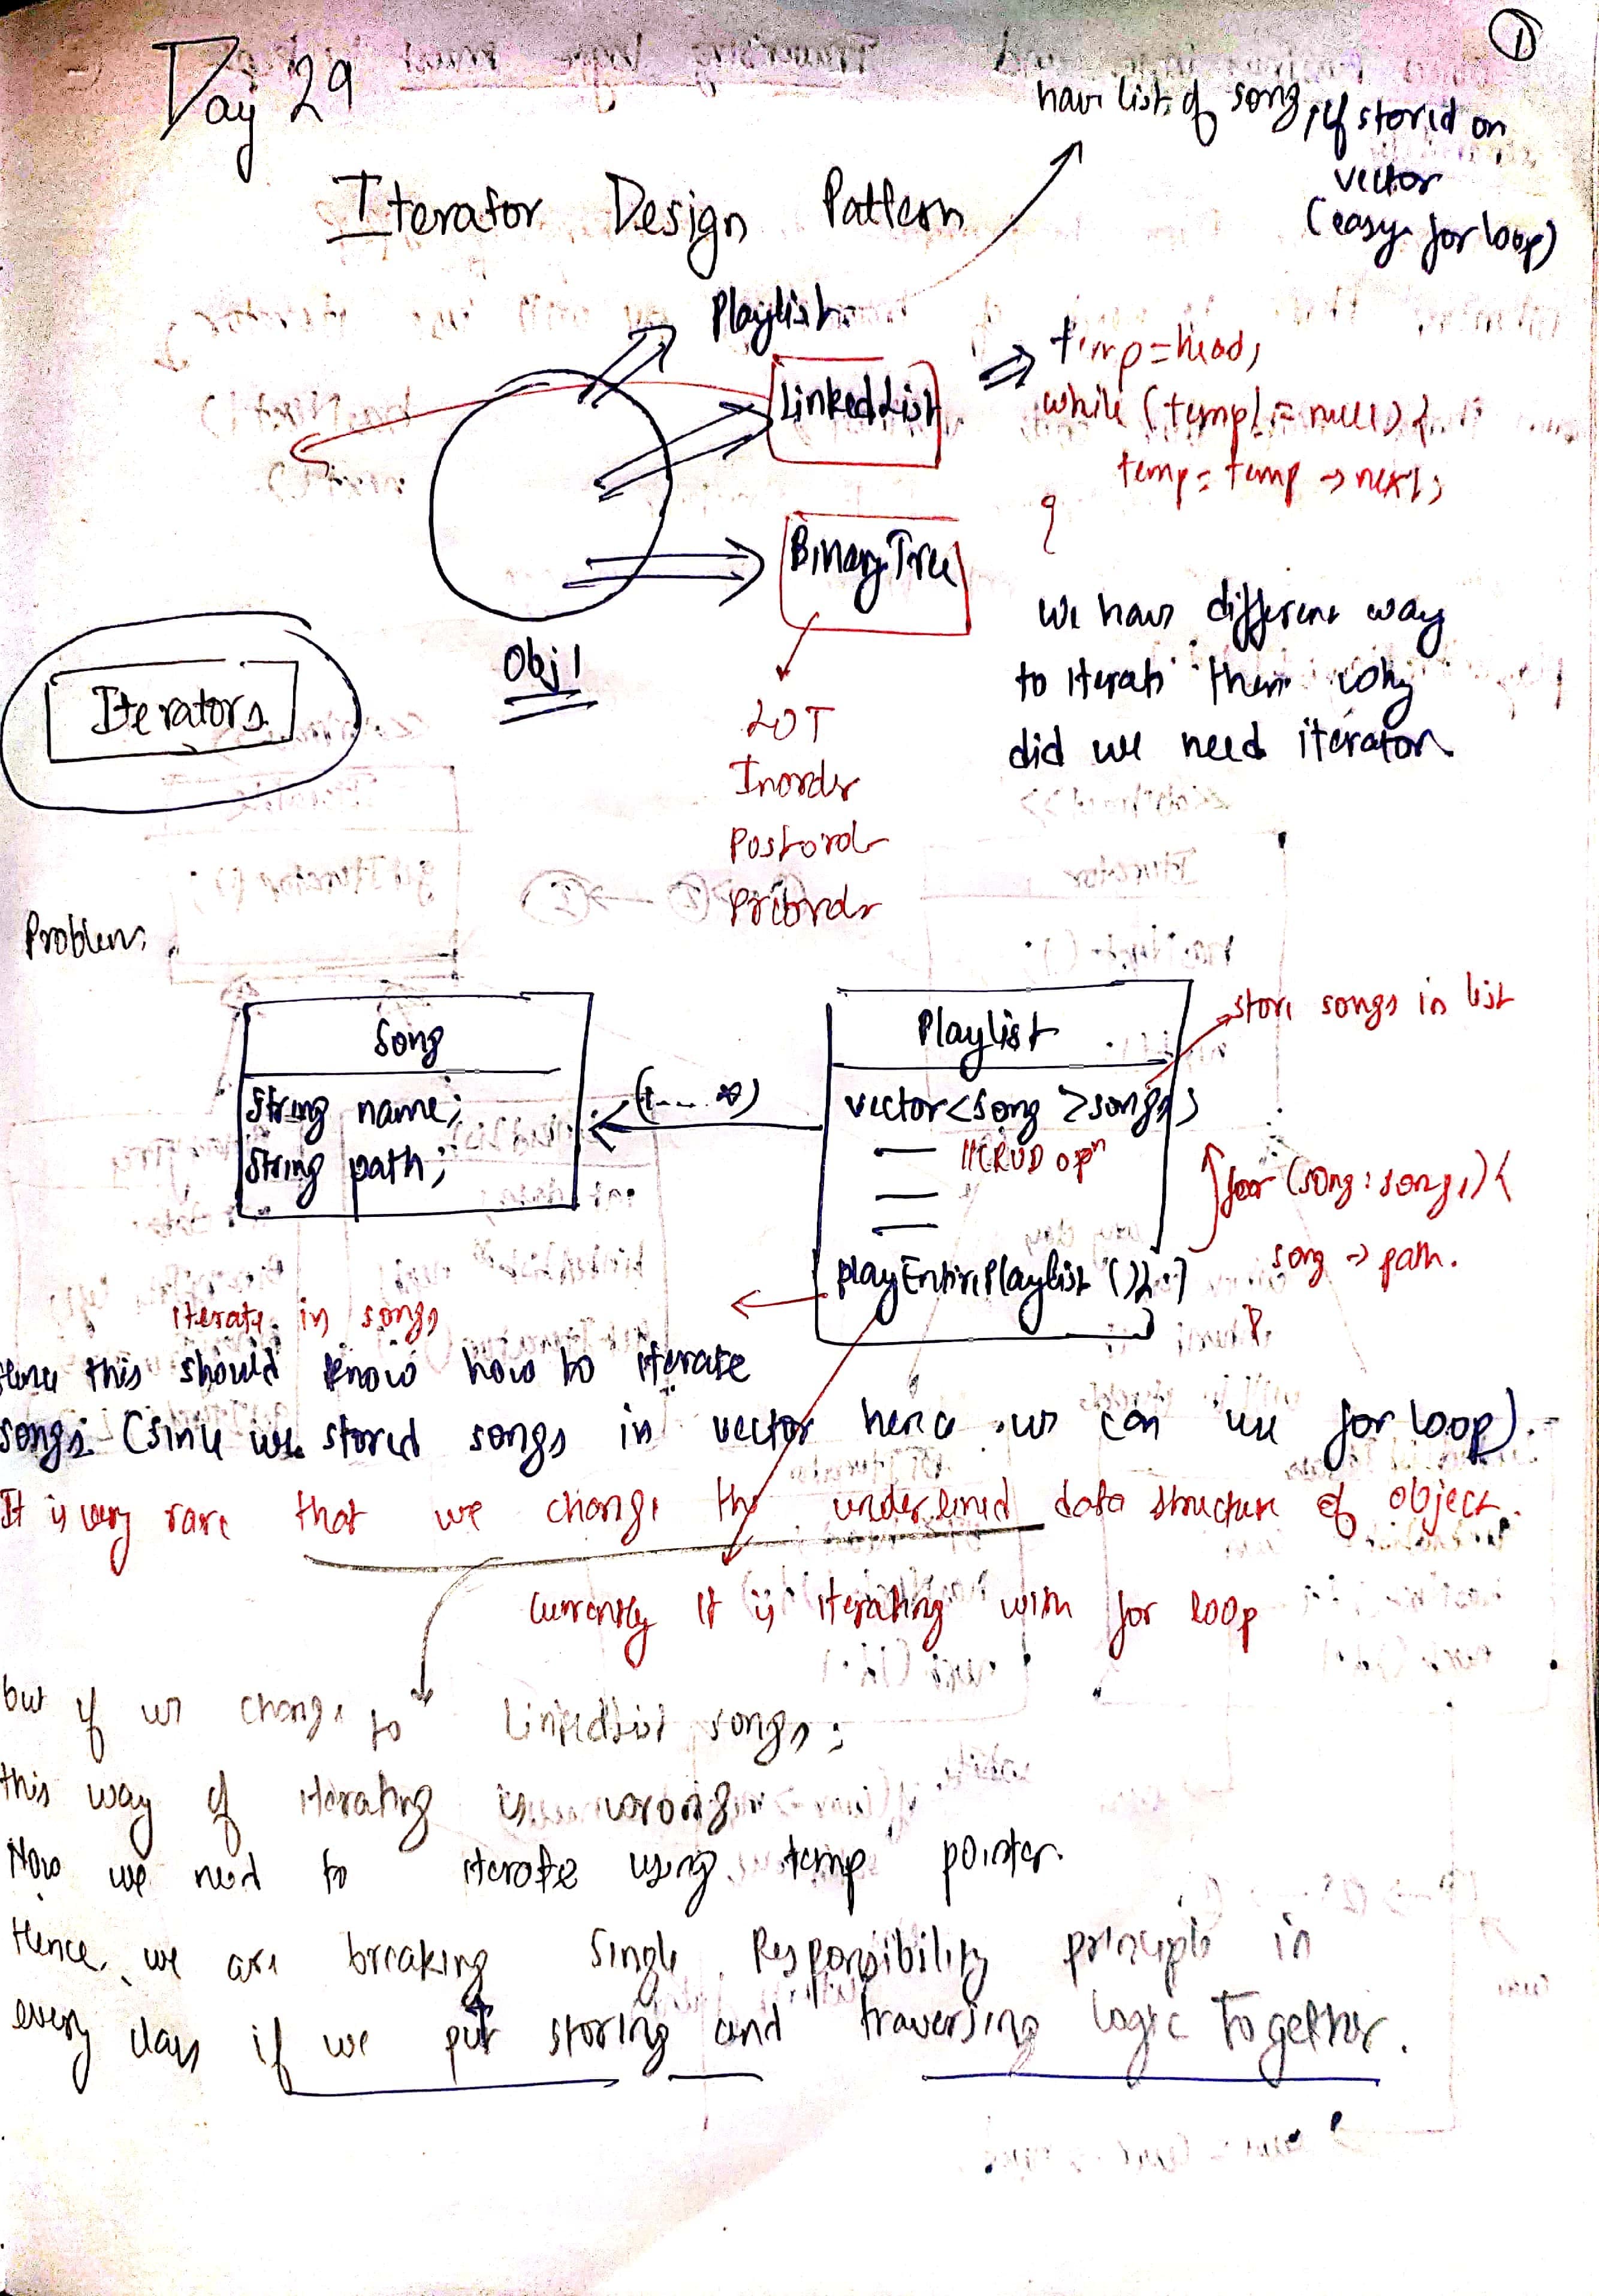 1
Day 29
have list of song, if stored on
vector
(easy for loop)
Iterator Design Pattern
Playlist
LinkedList
temp=head;
while (temp!=null) {
temp = temp → next;
}
BinaryTree
Obj1
Iterators
we have different way
to iterate them why
did we need iterator
LOT
Inorder
Postorder
Preorder
Problem:
Song
String name;
String path;
(1....*)
Playlist
vector<song>songs;
//CRUD opn
playEntirePlaylist(){ }
store songs in list
for (song : songs) {
song → path.
}
iterate in songs
Hence this should know how to iterate
songs. (since we stored songs in vector hence we can use for loop).
It is very rare that we change the underlined data structure of object.
currently it is iterating with for loop
but if we change to LinkedList songs;
this way of iterating is wrong
Now we need to iterate using temp pointer.
Hence, we are breaking Single Responsibility principle in
every class if we put storing and traversing logic together.